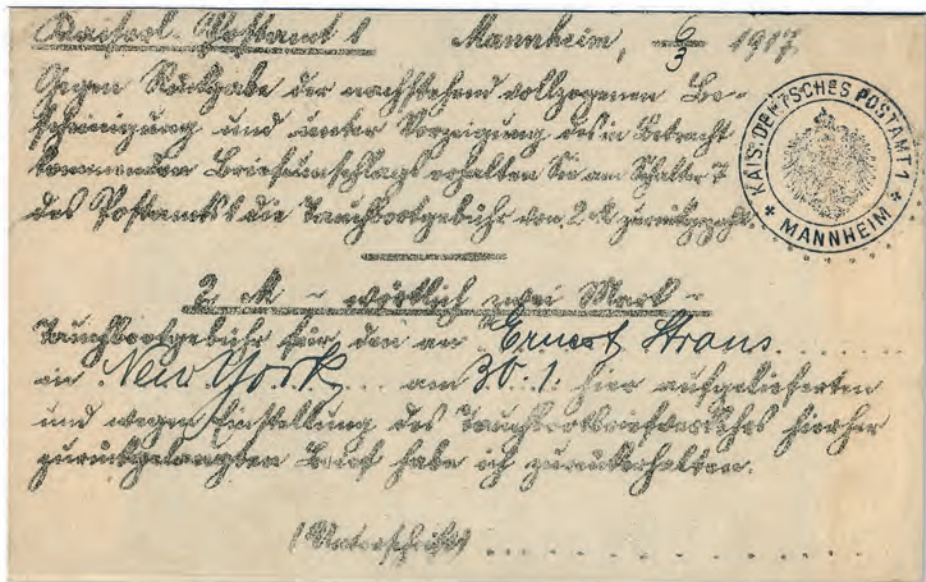 Kaiserl. Postamt 1 Mannheim, 6/3 1917
Gegen Rückgabe der nachstehend vollzogenen Be-
scheinigung und unter Vorzeigung des in Betracht
kommenden Briefumschlags erhalten Sie am Schalter 7
des Postamts 1 die Tauchbootgebühr von 2 M zurückgezahlt.
2 M – wörtlich zwei Mark –
Tauchbootgebühr für den an Ernest Straus
in New York am 30.1. hier aufgelieferten
und wegen Einstellung des Tauchbootbriefverkehrs hierher
zurückgelangten Brief habe ich zurückerhalten.
(Unterschrift)
KAIS. DEUTSCHES POSTAMT 1
* MANNHEIM *